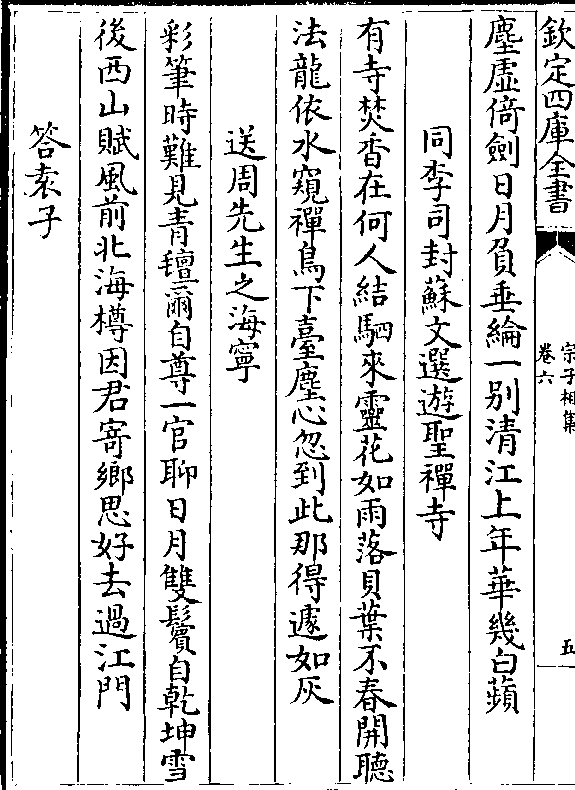 欽定四庫全書
宗子相集
卷六
五
塵虛倚劍日月負垂綸一別清江上年華幾白蘋
同李司封蘇文選遊聖禪寺
有寺焚香在何人結駟來靈花如雨落貝葉不春開聽
法龍依水窺禪鳥下臺塵心忽到此那得遽如灰
送周先生之海寧
彩筆時難見青氊爾自尊一官聊日月雙鬢自乾坤雪
後西山賦風前北海樽因君寄鄉思好去過江門
答袁子